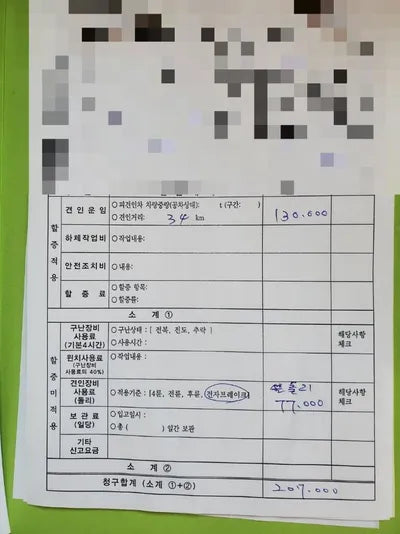 견인운임 ○ 피견인차 차량중량(공차상태): t (구간: )
○ 견인거리: 34 km 130.000
할증적용
하체작업비 ○ 작업내용:
안전조치비 ○ 내용:
할증료 ○ 할증 항목:
○ 할증률:
소 계 ①
할증미적용
구난장비 사용료 (기본4시간) ○ 구난상태 : [ 전복, 진도, 추락 ] 해당사항 체크
○ 사용시간 :
윈치사용료 (구난장비 사용료의 40%) ○ 작업내용 :
견인장비 사용료 (돌리) ○ 적용기준 : [4륜, 전륜, 후륜, 전자브레이크] 돌리 77.000 해당사항 체크
보관료 (일당) ○ 입고일시 :
○ 총 ( ) 일간 보관
기타 신고요금
소 계 ②
청구합계 (소계 ①+②) 207.000